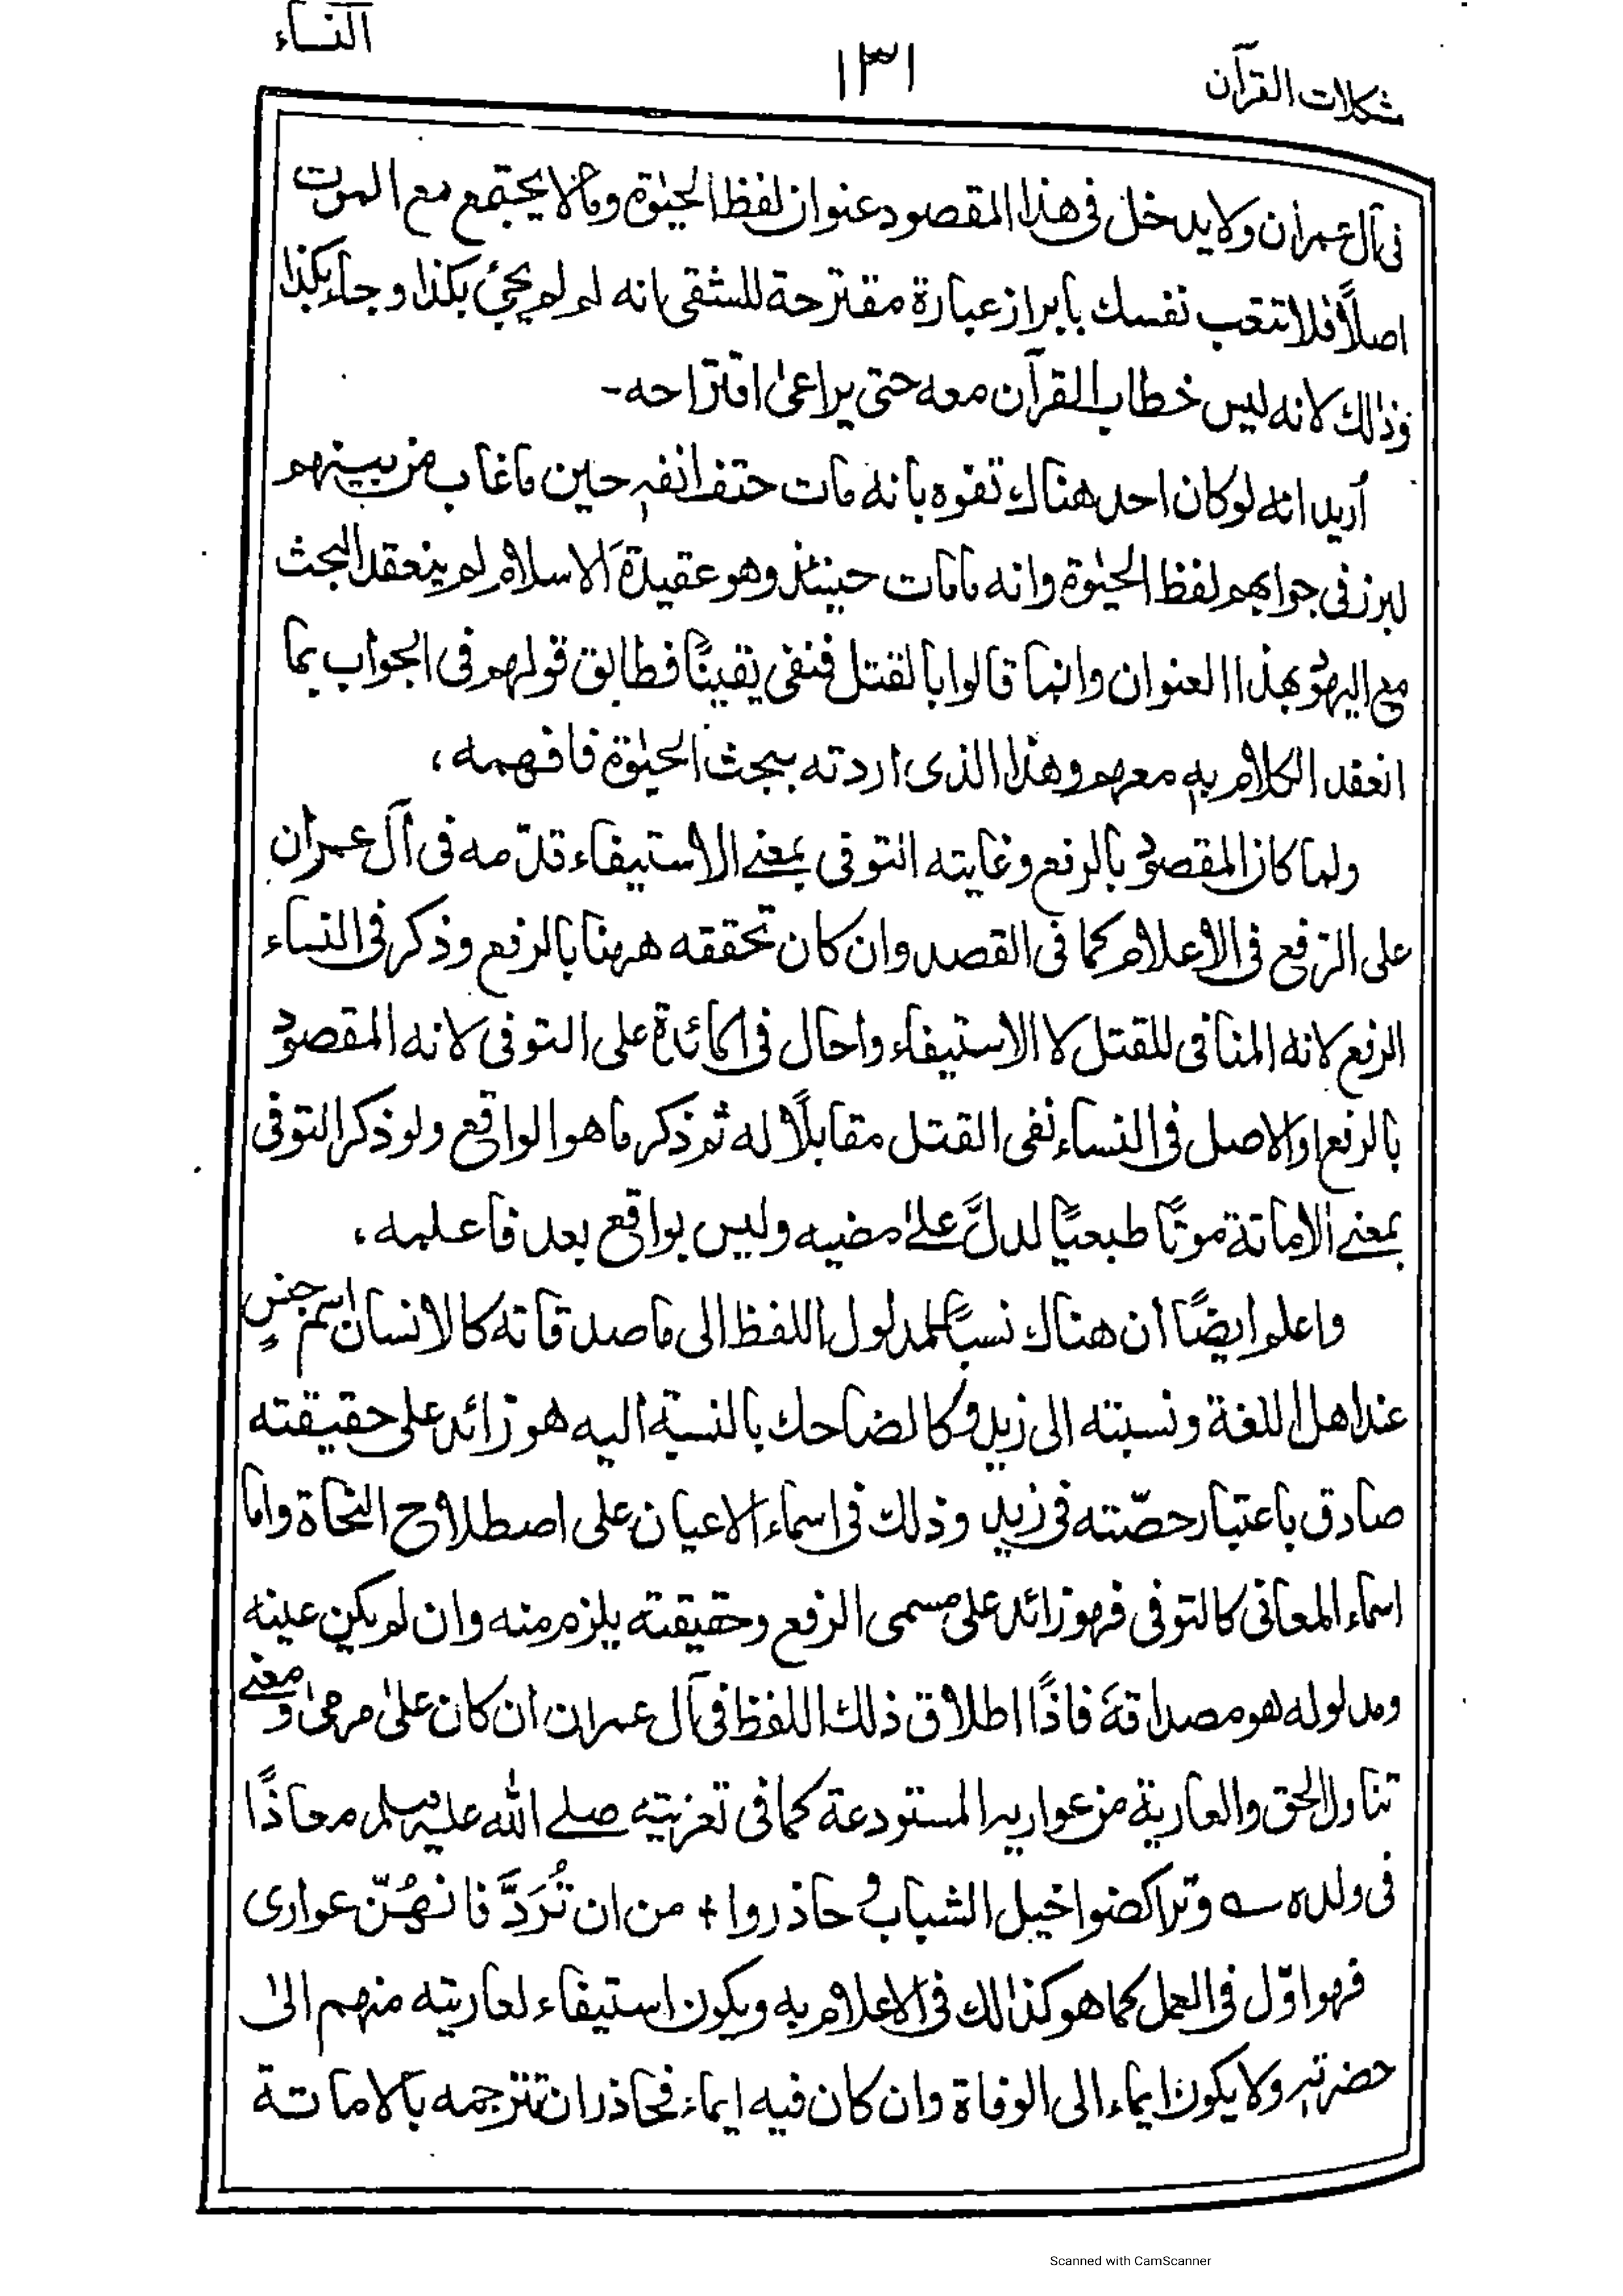 النساء
١٣١
مشكلات القرآن
فى آل عمران ولا يدخل فى هذا المقصود عنوان لفظ الحيٰوة ومما لا يجتمع مع الموت
اصلاً فلا تتعب نفسك بابراز عبارة مقترحة للشقى بانه لم لم يجئ بكذا وجاء بكذا
وذٰلك لانه ليس خطاب القرآن معه حتى يراعىٰ اقتراحه-
أريد انه لو كان احد هناك تفوه بانه مات حتف انفہٖ حين ما غاب من بينهم
لبرز فى جوابهم لفظ الحيٰوة وانه مامات حينئذ وهو عقيدة الاسلام لم ينعقد البحث
مع اليهود بهذا العنوان وانما قالوا بالقتل فنفى يقينًا فطابق قولهم فى الجواب بما
انعقد الكلام بهٖ معهم وهذا الذى اردته ببحث الحيٰوة فافهمه،
ولما كان المقصود بالرفع وغايته التوفى بمعنے الاستيفاء قدّمه فى آل عمران
على الرفع فى الاعلام كما فى القصد وان كان تحققه ههنا بالرفع وذكر فى النساء
الرفع لانه المنافى للقتل لا الاستيفاء واحال فى المائدة على التوفى لانه المقصود
بالرفع او الاصل فى النساء نفى القتل مقابلاً له ثم ذكر ما هو الواقع ولو ذكر التوفى
بمعنے الاماتة موتًا طبعيًا لدلَّ علىٰ مضيه وليس بواقع بعد فاعلمه،
واعلم ايضًا ان هناك نسبًا لمدلول اللفظ الى ماصدقاته كالانسان اسم جنسٍ
عند اهل اللغة ونسبته الى زيدٍ وكالضاحك بالنسبة اليه هو زائد على حقيقته
صادق باعتبار حصّته فى زيدٍ وذلك فى اسماء الاعيان على اصطلاح النحاة واما
اسماء المعانى كالتوفى فهو زائد على مسمى الرفع وحقيقته يلزم منه وان لم يكن عينه
ومدلوله هو مصداقة فاذًا اطلاق ذلك اللفظ فى آل عمران ان كان علىٰ مرمىٰ ومعنے
تناول الحق والعارية من عواريه المستودعة كما فى تعزيتهٖ صلے الله عليہ وسلم معاذًا
فى ولده ؎ وتراكضوا خيل الشباب وحاذروا + من ان تُرَدَّ فانهُنّ عوارى
فهو اوّل فى العمل كما هو كذالك فى الاعلام به ويكون استيفاء لعاريته منهم الىٰ
حضرتهٖ ولا يكون ايماء الى الوفاة وان كان فيه ايماء فحاذر ان تترجمه بالاماتة
Scanned with CamScanner